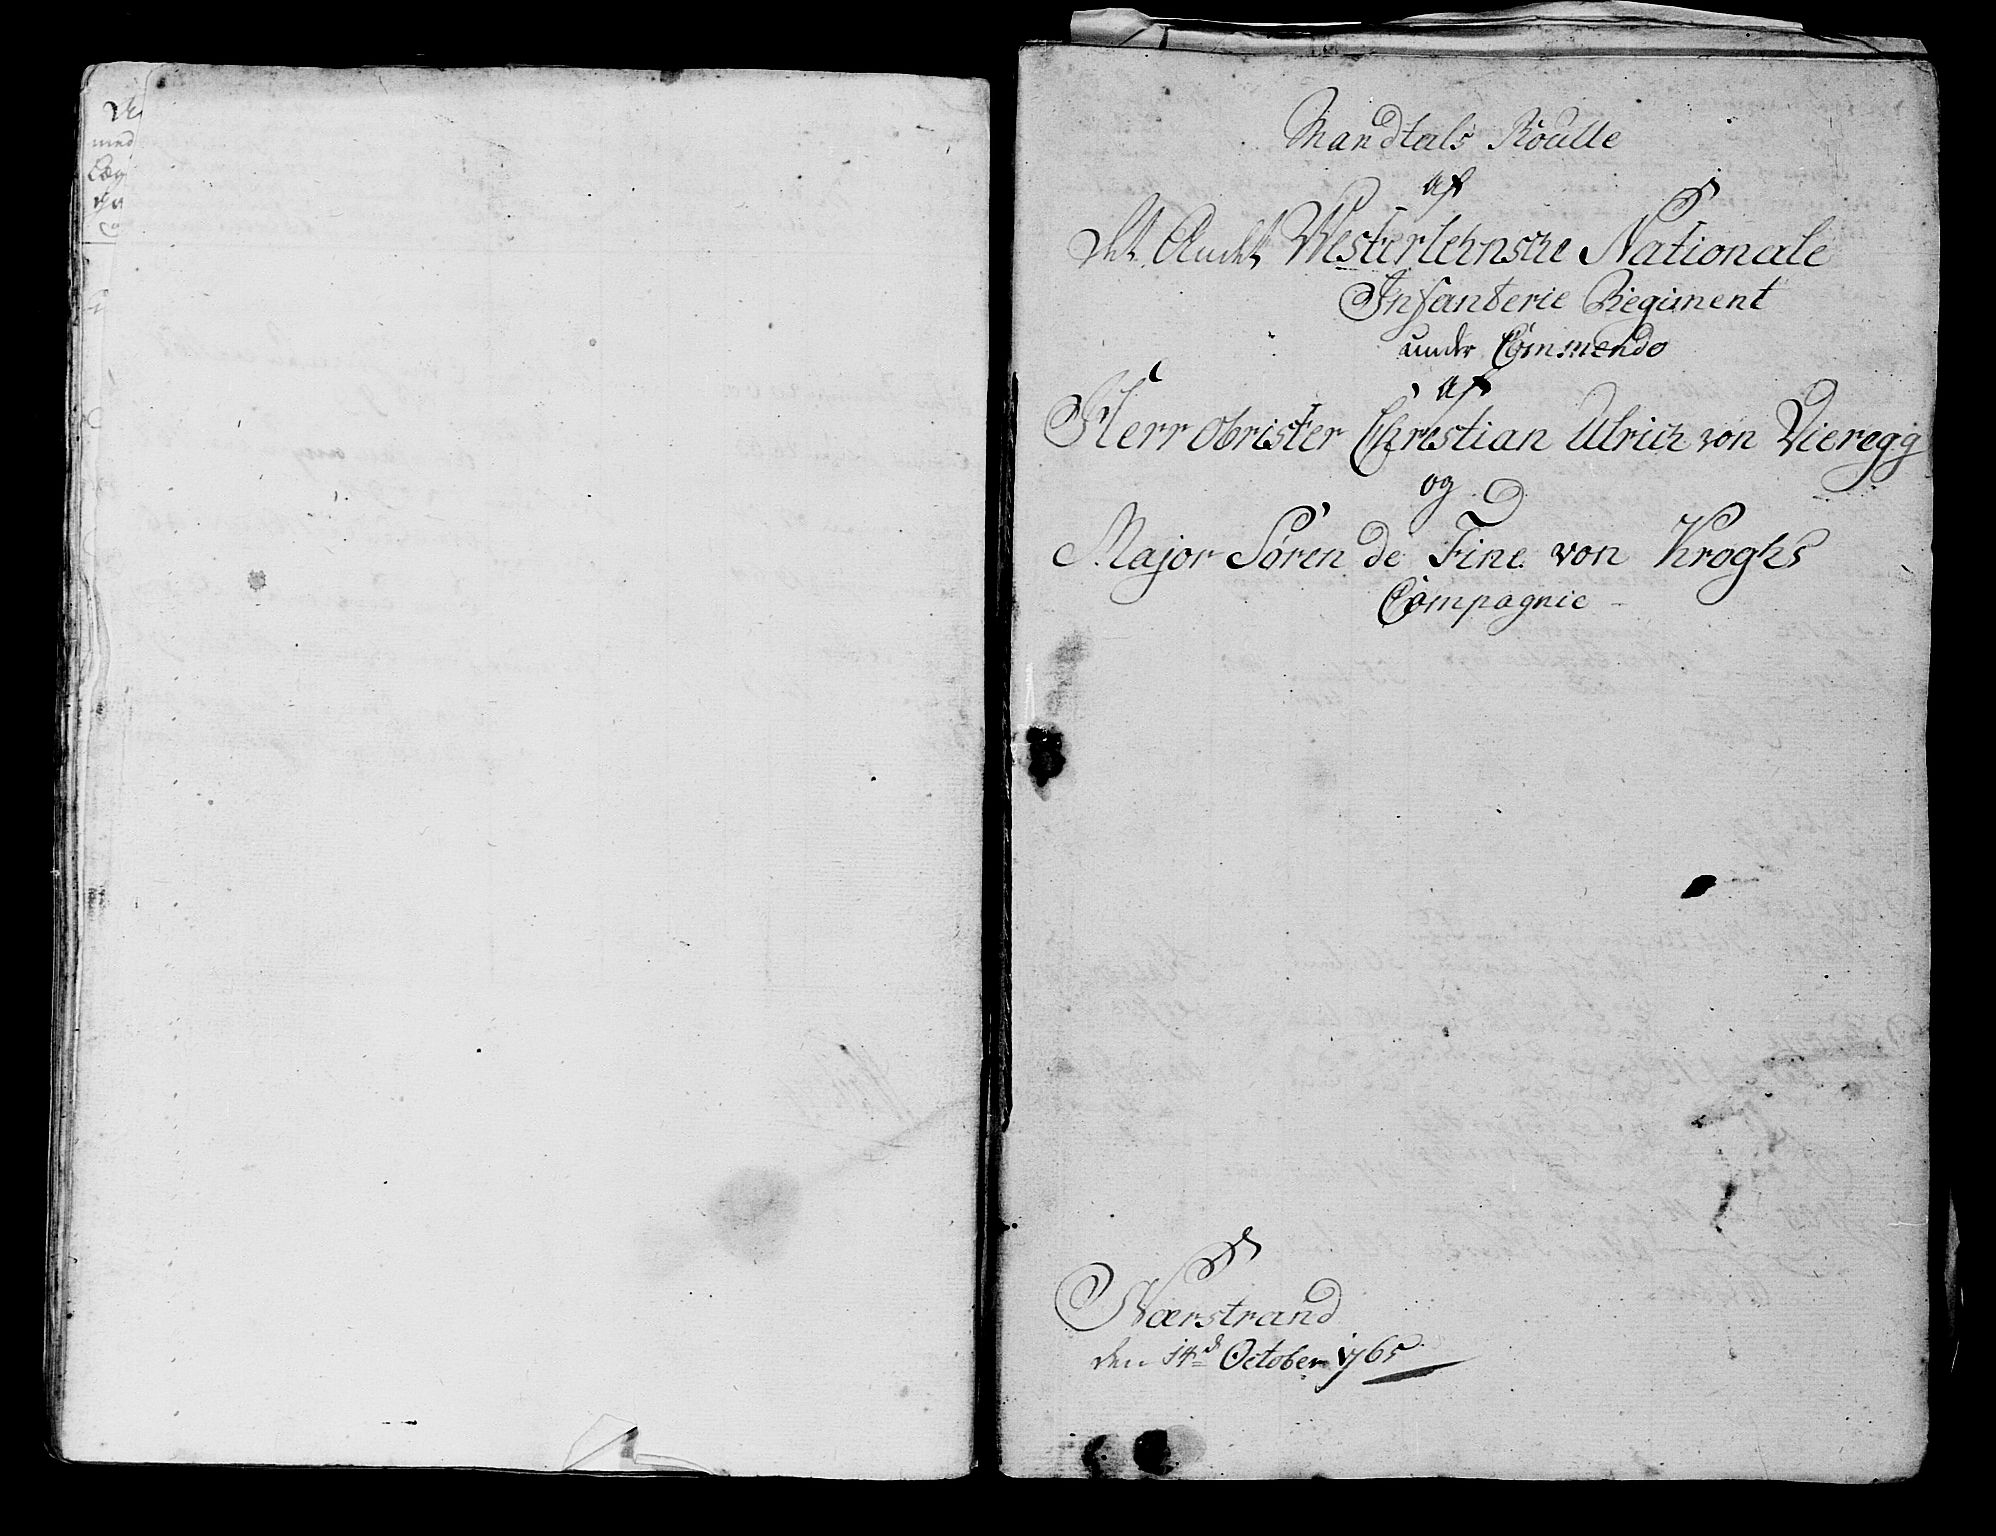 med
Mandtals Roulle
af
det Andet Westerlehnsche Nationale
Infanterie Regiment
under Commendo
af
Herr Obrister Christian Ulrich von Vieregg
og
Major Søren de Fine von Kroghs
Compagnie
Nærstrand
den 14d October 1765